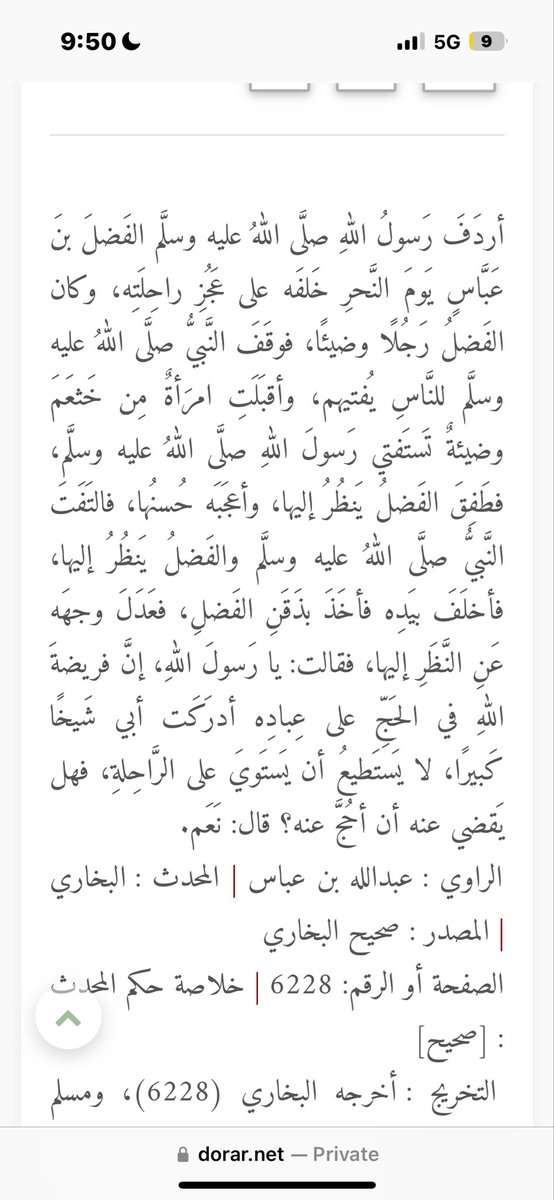 9:50
5G 9
أردَفَ رَسولُ اللهِ صلَّى اللهُ عليه وسلَّم الفَضلَ بنَ
عَبَّاسٍ يَومَ النَّحرِ خَلفَه على عَجُزِ راحِلَتِه، وكان
الفَضلُ رَجُلًا وضيئًا، فوقَفَ النَّبيُّ صلَّى اللهُ عليه
وسلَّم للنَّاسِ يُفتيهم، وأقبَلَتِ امرَأةٌ مِن خَثعَمَ
وضيئةٌ تَستَفتي رَسولَ اللهِ صلَّى اللهُ عليه وسلَّم،
فطَفِقَ الفَضلُ يَنظُرُ إليها، وأعجَبَه حُسنُها، فالتَفَتَ
النَّبيُّ صلَّى اللهُ عليه وسلَّم والفَضلُ يَنظُرُ إليها،
فأخلَفَ بيَدِه فأخَذَ بذَقَنِ الفَضلِ، فعَدَلَ وجهَه
عَنِ النَّظَرِ إليها، فقالت: يا رَسولَ اللهِ، إنَّ فريضةَ
اللهِ في الحَجِّ على عِبادِه أدرَكَت أبي شَيخًا
كَبيرًا، لا يَستَطيعُ أن يَستَويَ على الرَّاحِلةِ، فهل
يَقضي عنه أن أحُجَّ عنه؟ قال: نَعَم.
الراوي : عبدالله بن عباس | المحدث : البخاري
| المصدر : صحيح البخاري
الصفحة أو الرقم: 6228 | خلاصة حكم المحدث
: [صحيح]
التخريج : أخرجه البخاري (6228)، ومسلم
dorar.net — Private